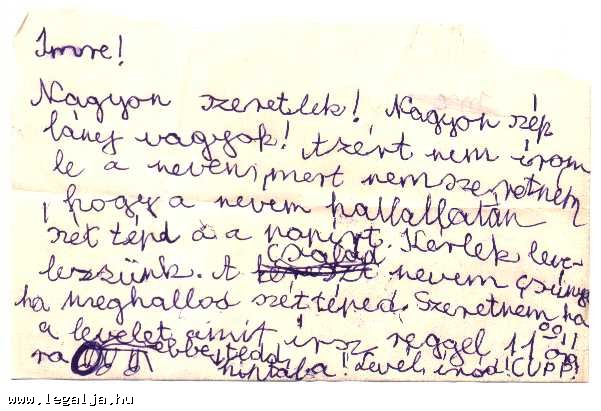 Imre!
Nagyon szeretlek! Nagyon szép
lány vagyok! Azért nem írom
le a nevem, mert nem szeretném
, hogy a nevem hallatán
szét tépd a a papírt. Kérlek leve-
lezzünk. A család nevem csúnya
ha meghallod széttéped. Szeretném ha
a levelet amit írsz reggel 11 00 11
ra ebbe tedd
! Levél íród! CUPP!
www.legalja.hu